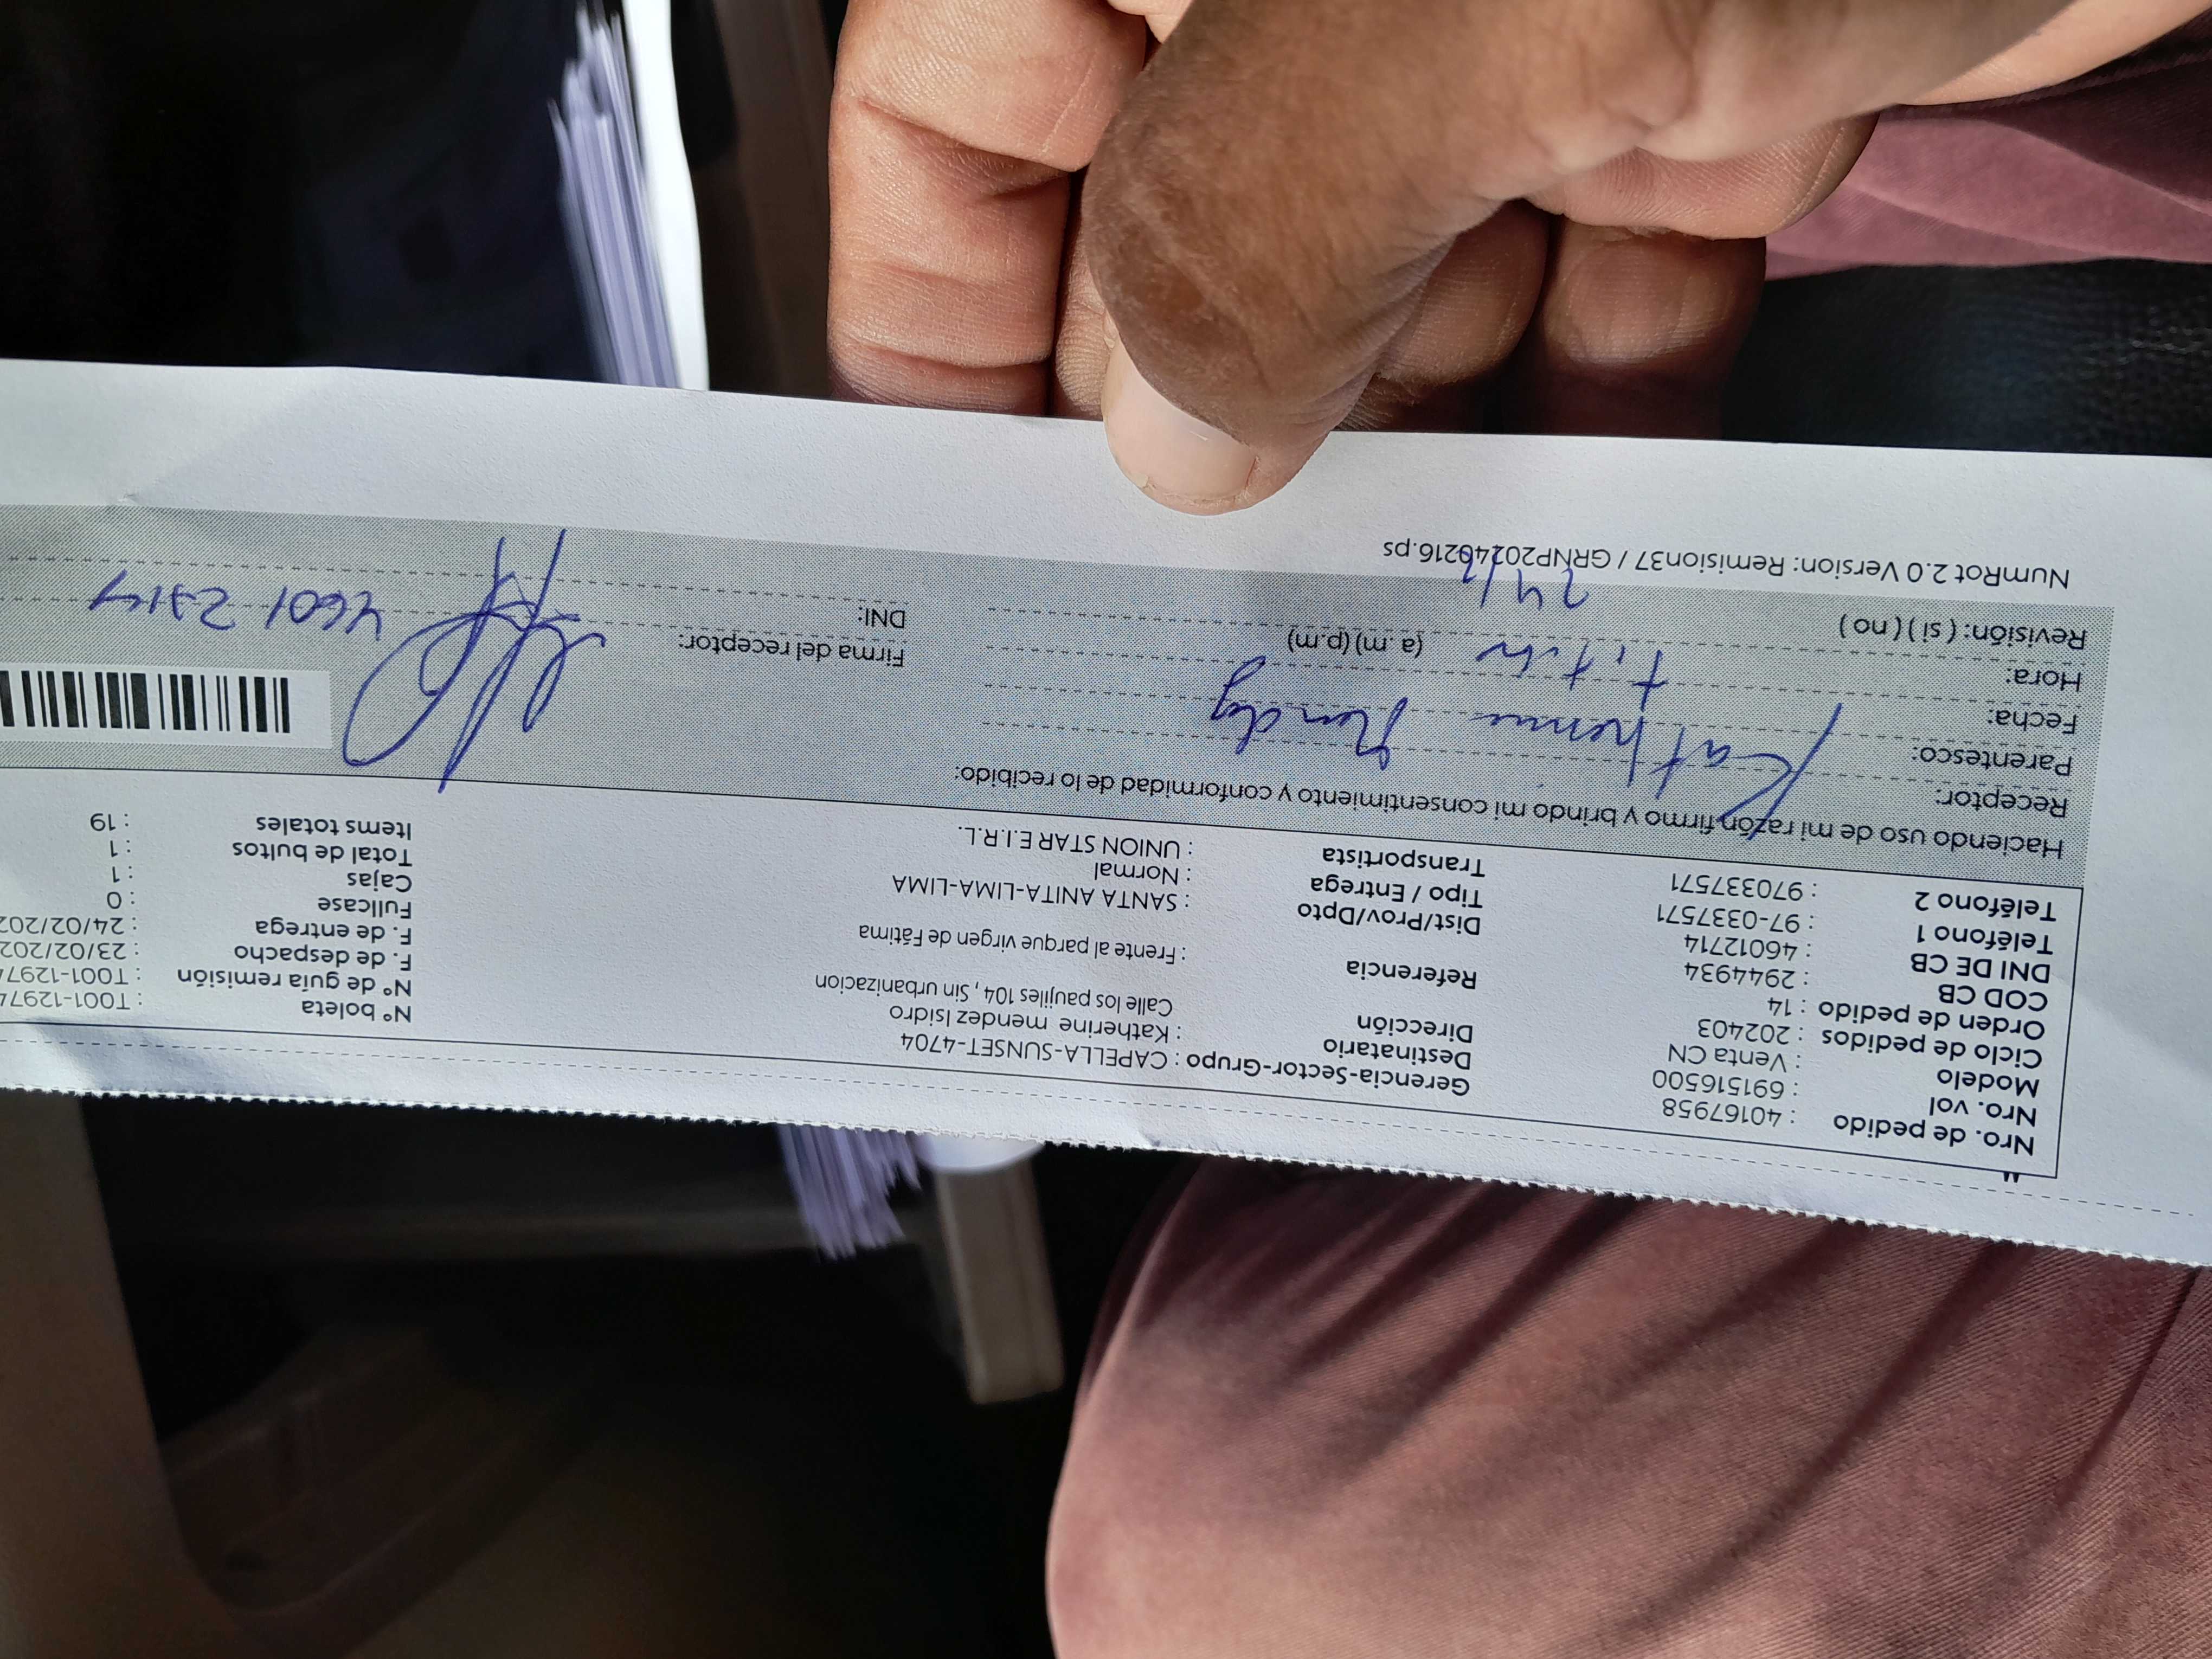 Nro. de pedido : 40167958
Nro. vol : 691516500
Modelo : Venta CN
Ciclo de pedidos : 202403
Orden de pedido : 14
COD CB : 2944934
DNI DE CB : 46012714
Teléfono 1 : 97-0337571
Teléfono 2 : 970337571
Gerencia-Sector-Grupo : CAPELLA-SUNSET-4704
Destinatario : Katherine mendez Isidro
Dirección Calle los paujiles 104 , Sin urbanizacion
Referencia : Frente al parque virgen de Fátima
Dist/Prov/Dpto : SANTA ANITA-LIMA-LIMA
Tipo / Entrega : Normal
Transportista : UNION STAR E.I.R.L.
N° boleta : T001-1297
N° de guía remisión : T001-1297
F. de despacho : 23/02/202
F. de entrega : 24/02/202
Fullcase : 0
Cajas : 1
Total de bultos : 1
Items totales : 19
Haciendo uso de mi razón firmo y brindo mi consentimiento y conformidad de lo recibido:
Receptor: Katherine
Parentesco: Titular
Fecha: 24/2
Hora: (a. m) (p.m)
Revisión: ( si ) ( no )
Firma del receptor:
DNI:
NumRot 2.0 Version: Remision37 / GRNP20240216.ps